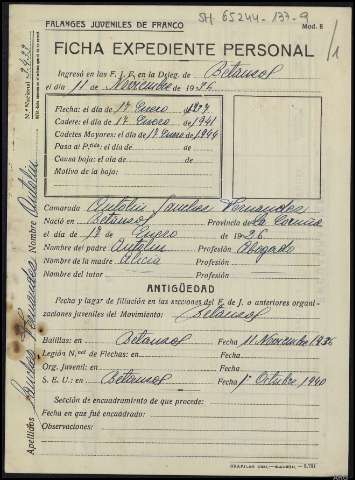 FALANGES JUVENILES DE FRANCO
SH 65244-137-9
Mod. 8
1
FICHA EXPEDIENTE PERSONAL
Nº Nacional 2933
Ingresó en las F. J. F. en la Deleg. de Betanzos
el día 11 de Noviembre de 1936
Flecha: el día de 1º Enero 1937
Cadete: el día de 1º Enero de 1941
Cadetes Mayores: el día de 1º Enero de 1944
Pasa al P: el día de de
Causa baja: el día de de
Motivo de la baja:
Camarada Antolín Sánchez Fernández
Nació en Betanzos Provincia de La Coruña
el día de 17 de Enero de 1926
Nombre del padre Antolín Profesión Abogado
Nombre de la madre Alicia Profesión
Nombre del tutor Profesión
ANTIGÜEDAD
Fecha y lugar de filiación en las secciones del F. de J. o anteriores organi-
zaciones juveniles del Movimiento: Betanzos
Balillas: en Betanzos Fecha 11 Noviembre 1936
Legión N. de Flechas: en Fecha
Org. Juvenil: en Fecha
S. E. U.: en Betanzos Fecha 1º Octubre 1940
Sección de encuadramiento de que procede:
Fecha en que fué encuadrado:
Observaciones:
Apellidos Sánchez Fernández Nombre Antolín